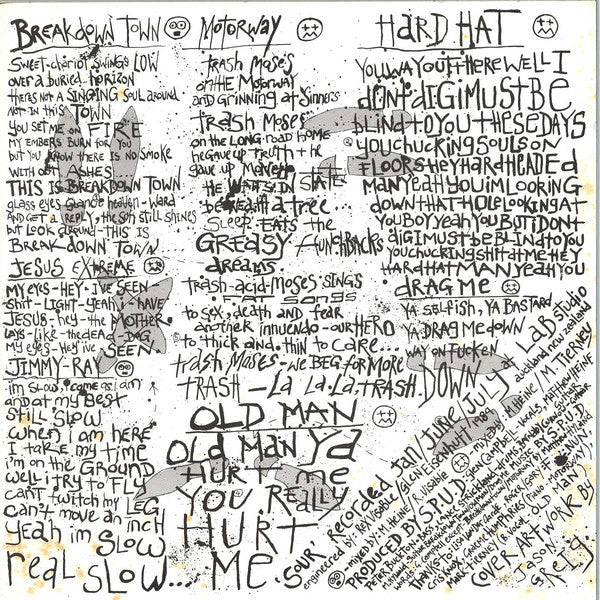 BREAKDOWN TOWN
SWEET-chariot SWINGS LOW
over a buried horizon
theres not a SINGING soul around
not in this TOWN
YOU SET ME on FIRE
My EMBERS BURN for YOU
but you KNOW there is no SMOKE
with out ASHES
THIS IS BREAKDOWN TOWN
glass eyes glance heaven-ward
and get a REPLY, the SON still shines
but Look around-this is
BREAKDOWN TOWN
JESUS EXTREME
My EYES-HEY-I'VE SEEN
shit-LIGHT-yeah i-have
JESUS-hey-the MOTHER
LAYS-like-the dead-DOG
my eyes-Hey i've SEEN
JIMMY-RAY
i'm slow, come as i am
and at my Best
still slow
when i am here
I take my time
i'm on the GROUND
well i try to FLY
can't twitch my LEG
can't move an inch
Yeah im SLOW
real SLOW....
MOTORWAY
trash Moses
on the MOTORWAY
and GRINNING at SINNERS
TRASH MOSES
on the LONG road HOME
he gave up TRUTH + he
gave up MONEY
he WAITS IN STATE
beneath a tree
SLEEP EATS the
GREASY HUNCHBACKS
dreams
trash-acid-Moses SINGS
FAT SONGS
to SEX, death AND fear
another innuendo-our HERO
to thick and thin to care...
trash Moses-we BEG for MORE
TRASH - La La La TRASH
OLD MAN
OLD MAN YA
HURT me
YOU REALLY
HURT
ME
HARD HAT
YOU WAY OUT THERE WELL I
DONT DIG I MUST BE
blind to YOU THESE DAYS
YOU CHUCKING SOULS ON
FLOORS HEY HARD HEADED
MAN YEAH YOU IM LOOKING
DOWN THAT HOLE LOOKING AT
YOU BOY YEAH YOU BUT I DONT
DIG I MUST BE BLIND TO YOU
YOU CHUCKING SHIT AT ME HEY
HARD HAT MAN YEAH YOU
DRAG ME
YA SELFISH, YA BASTARD
YA DRAG ME DOWN
WAY ON FUCKEN
DOWN
'SOUR' recorded Jan/June/July at LAB studio
auckland new zealand
PRODUCED BY S.P.U.D.
COVER ARTWORK BY
JASON
GREIG.